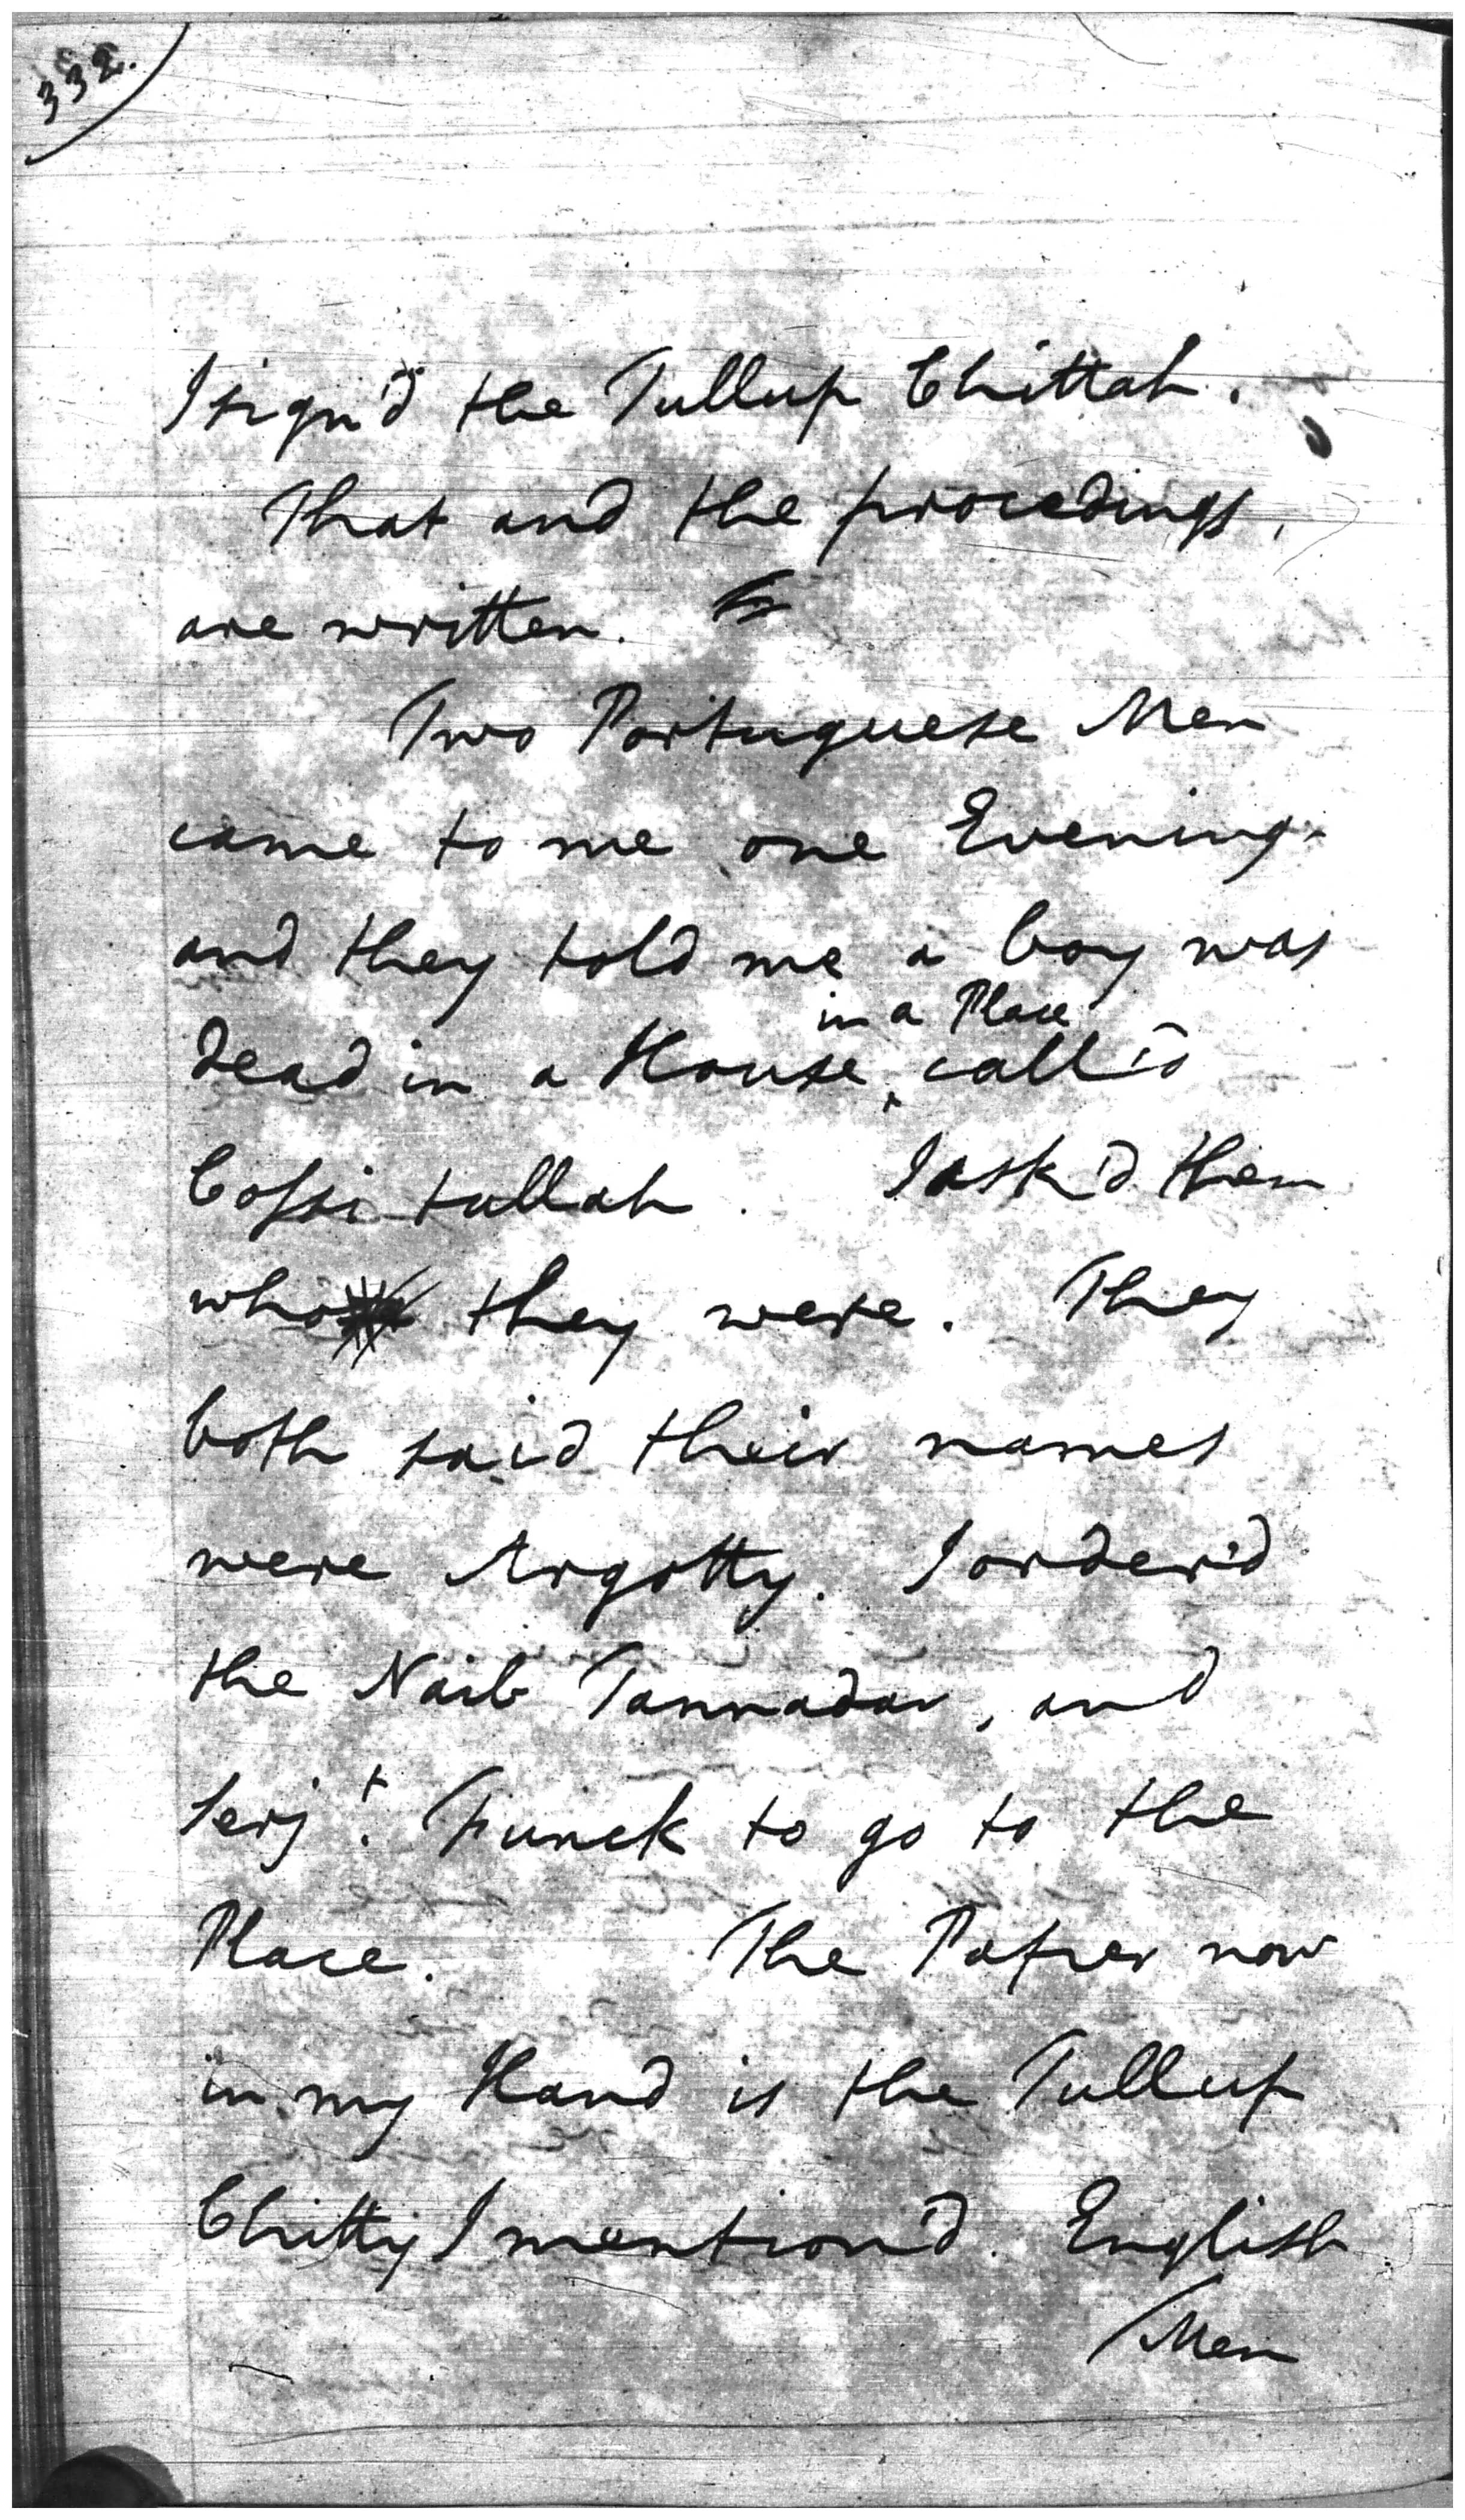 332.
I sign'd the Tullup Chittah.
That and the procedings,
are written.
Two Portuguese Men
came to me one Evening
and they told me a boy was
in a Place
dead in a House ‸ call'd
Cossi tullah. I ask'd them
who they were. They
both said their names
were Argotty. I order'd
the Naib Tannadar, and
Serjt. Funck to go to the
Place. The Paper now
in my Hand is the Tullup
Chitty I mention'd. English
Men